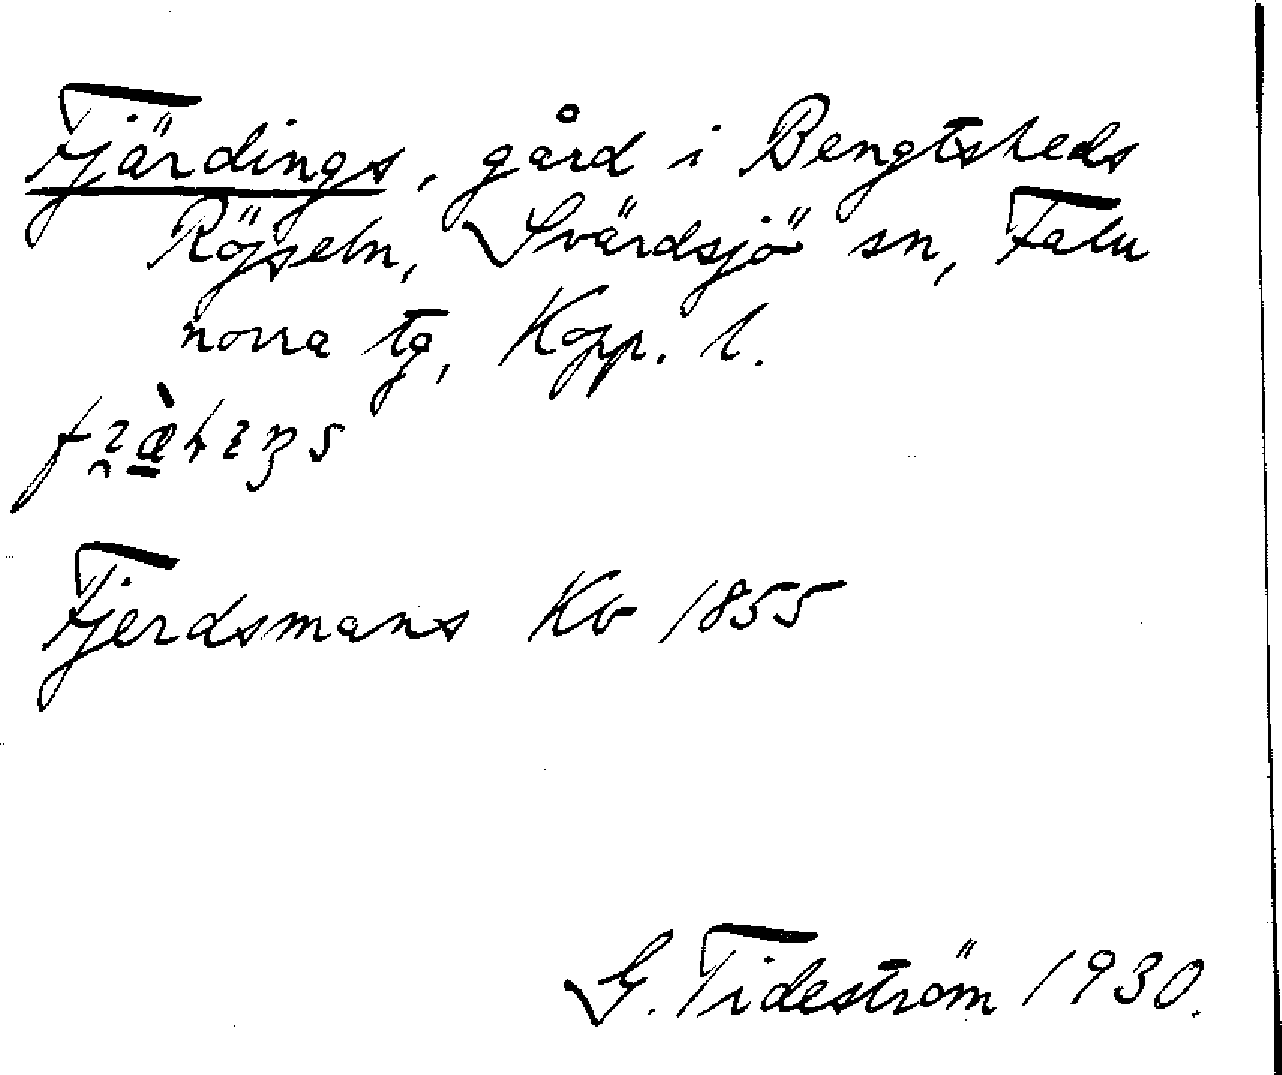 Fjärdings, gård i Bengtsheds
Röjseln, Svärdsjö sn, Falu
norra tg, Kopp. l.
Fjerdsmans Kb 1855
G. Tideström 1930.